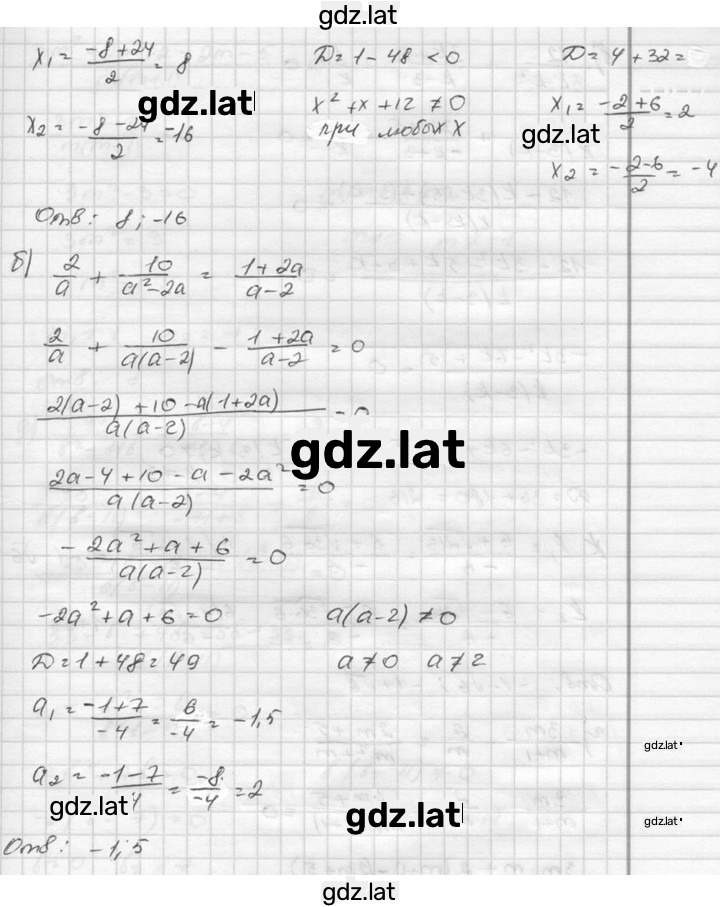 gdz.lat
x₁ = (-8+24)/2 = 8
x₂ = (-8-24)/2 = -16
Отв: 8; -16
D = 1 - 48 < 0
x² + x + 12 ≠ 0
при любых x
D = 4 + 32 =
x₁ = (-2+6)/2 = 2
x₂ = (-2-6)/2 = -4
gdz.lat
gdz.lat
б) 2/a + 10/(a²-2a) = (1+2a)/(a-2)
2/a + 10/(a(a-2)) - (1+2a)/(a-2) = 0
(2(a-2) + 10 - a(1+2a))/(a(a-2)) = 0
gdz.lat
(2a-4+10-a-2a²)/(a(a-2)) = 0
-(2a²+a+6)/(a(a-2)) = 0
-2a²+a+6=0 a(a-2) ≠ 0
D=1+48=49 a≠0 a≠2
a₁ = (-1+7)/(-4) = 6/(-4) = -1,5
gdz.lat
a₂ = (-1-7)/4 = (-8)/(-4) = 2
gdz.lat
gdz.lat
gdz.lat
Отв: -1,5
gdz.lat